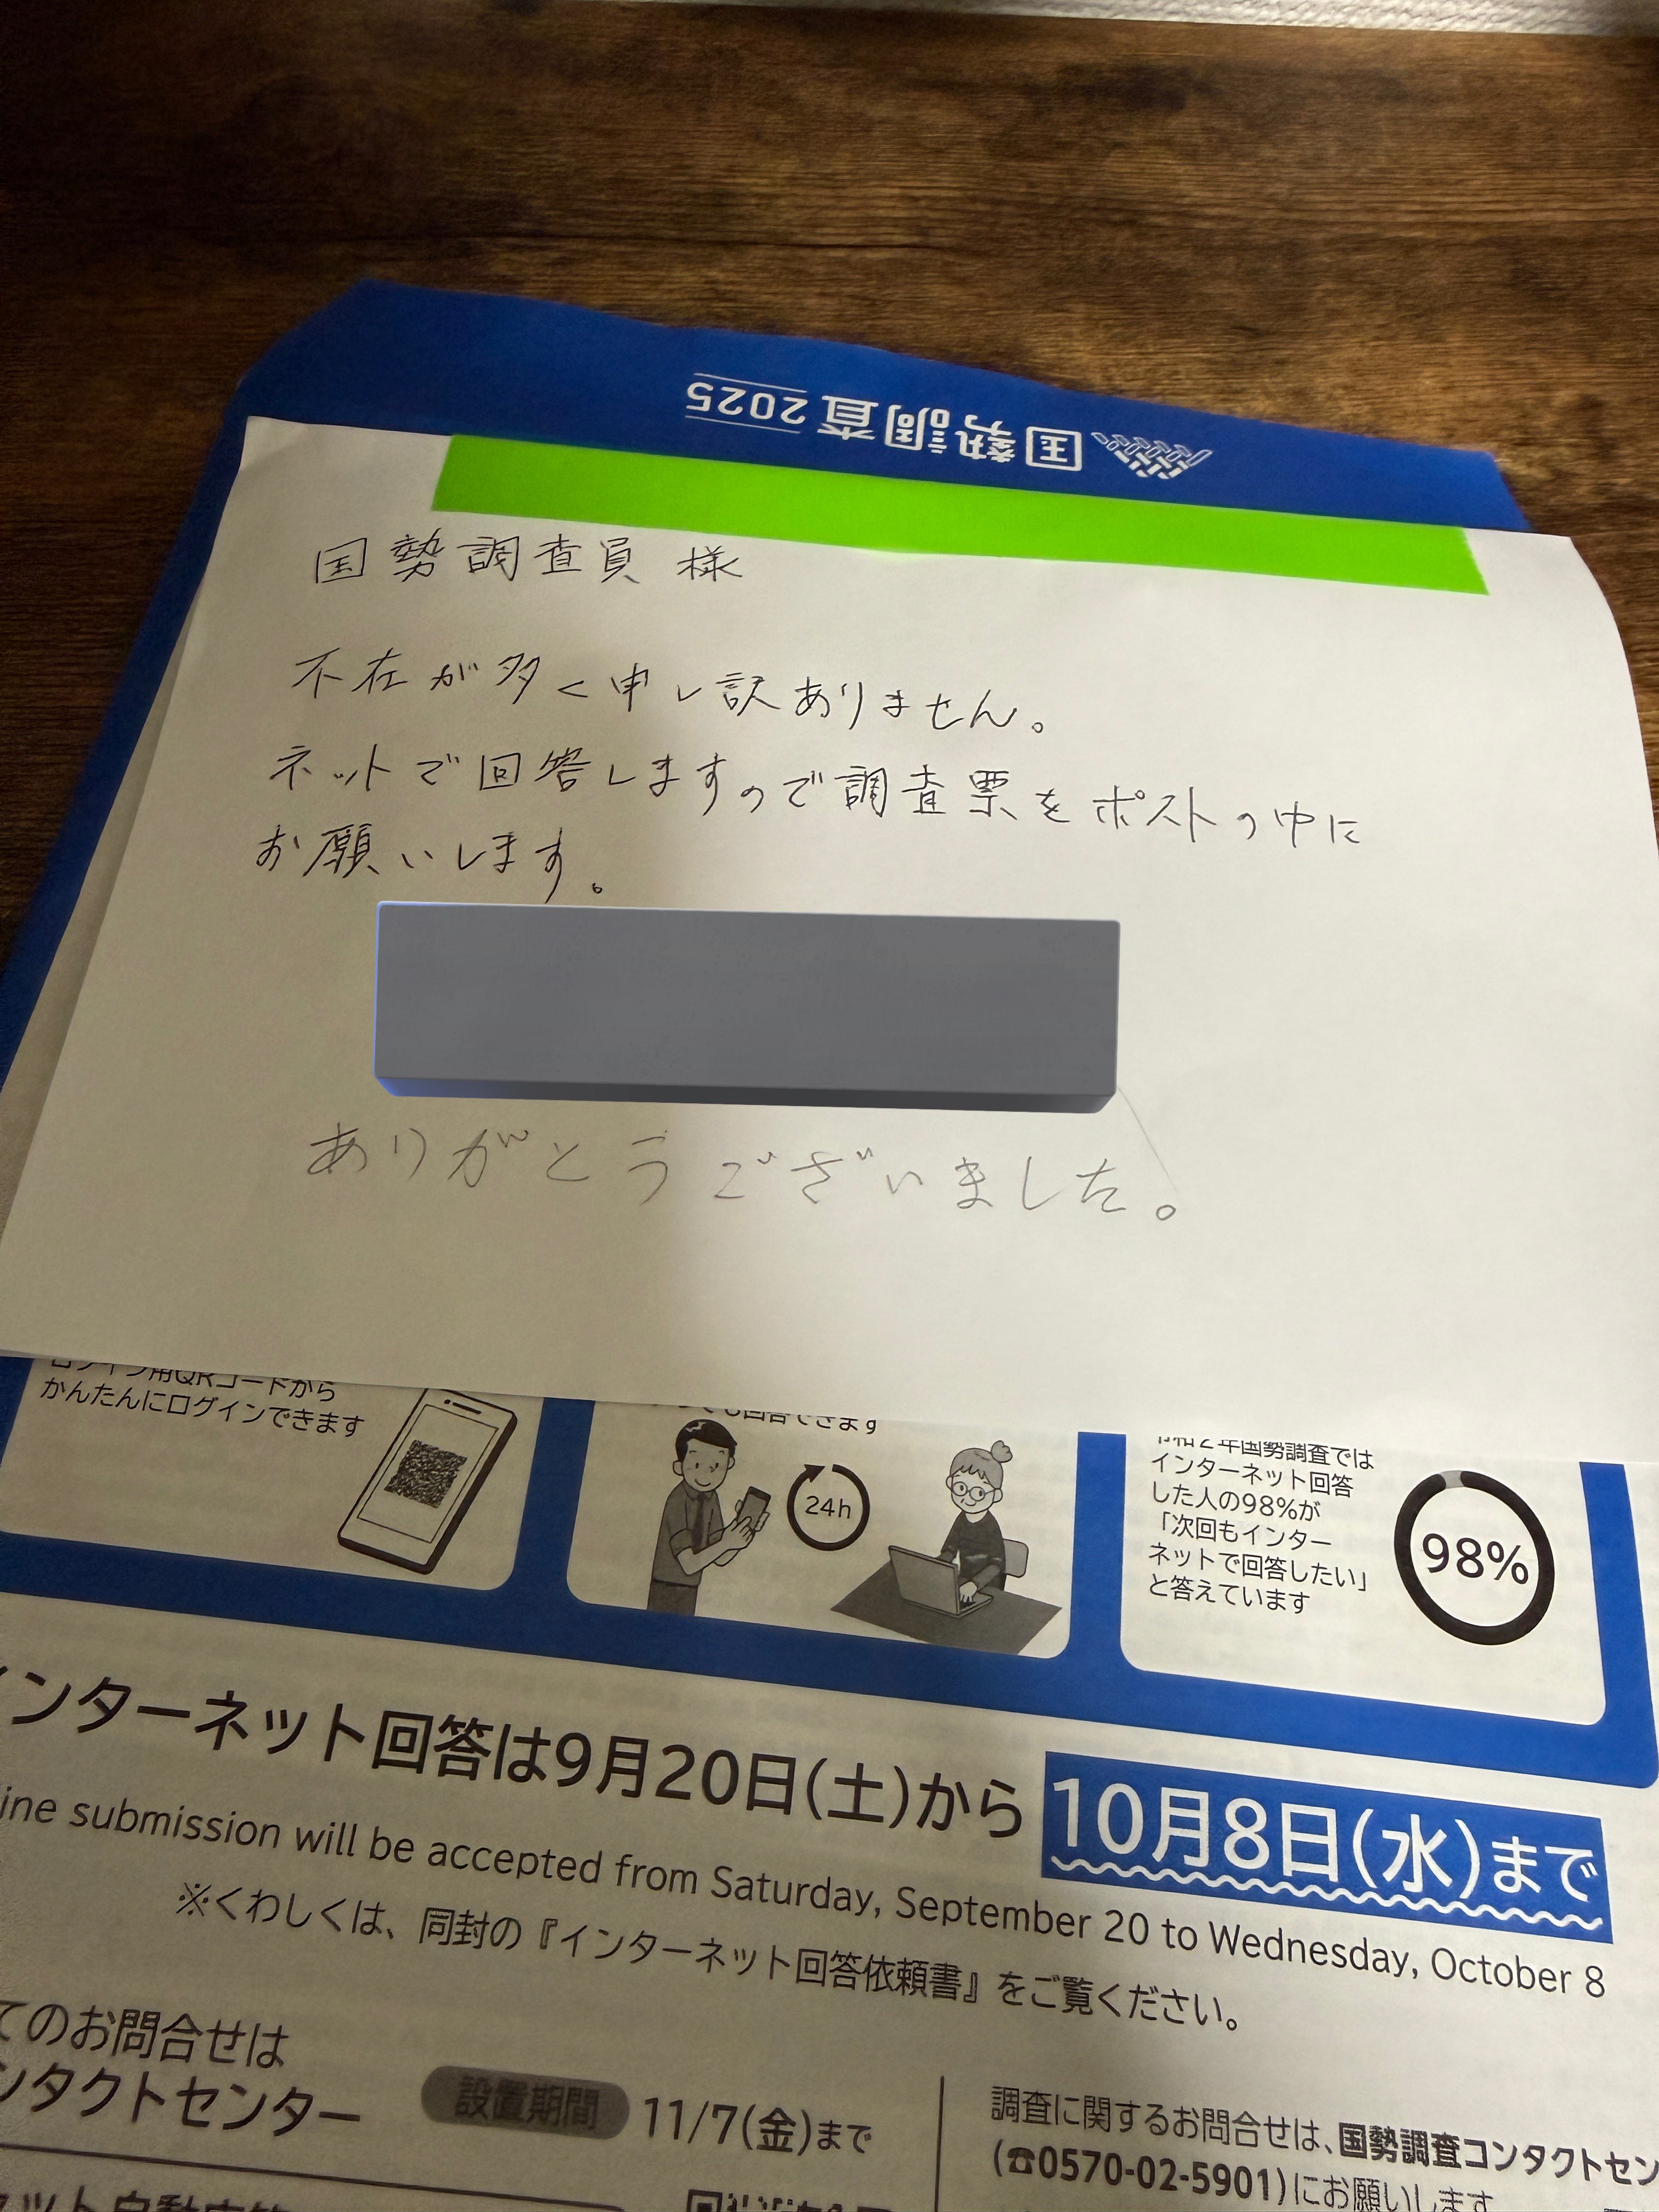 国勢調査2025
国勢調査員 様
不在が多く申し訳ありません。
ネットで回答しますので調査票をポストの中に
お願いします。
ありがとうございました。
ログイン用QRコードから
かんたんにログインできます
も回答できます
24h
令和2年国勢調査では
インターネット回答
した人の98%が
「次回もインター
ネットで回答したい」
と答えています
98%
インターネット回答は9月20日(土)から10月8日(水)まで
ine submission will be accepted from Saturday, September 20 to Wednesday, October 8
※くわしくは、同封の『インターネット回答依頼書』をご覧ください。
てのお問合せは
ンタクトセンター
設置期間 11/7(金)まで
調査に関するお問合せは、国勢調査コンタクトセン
(☎0570-02-5901)にお願いします